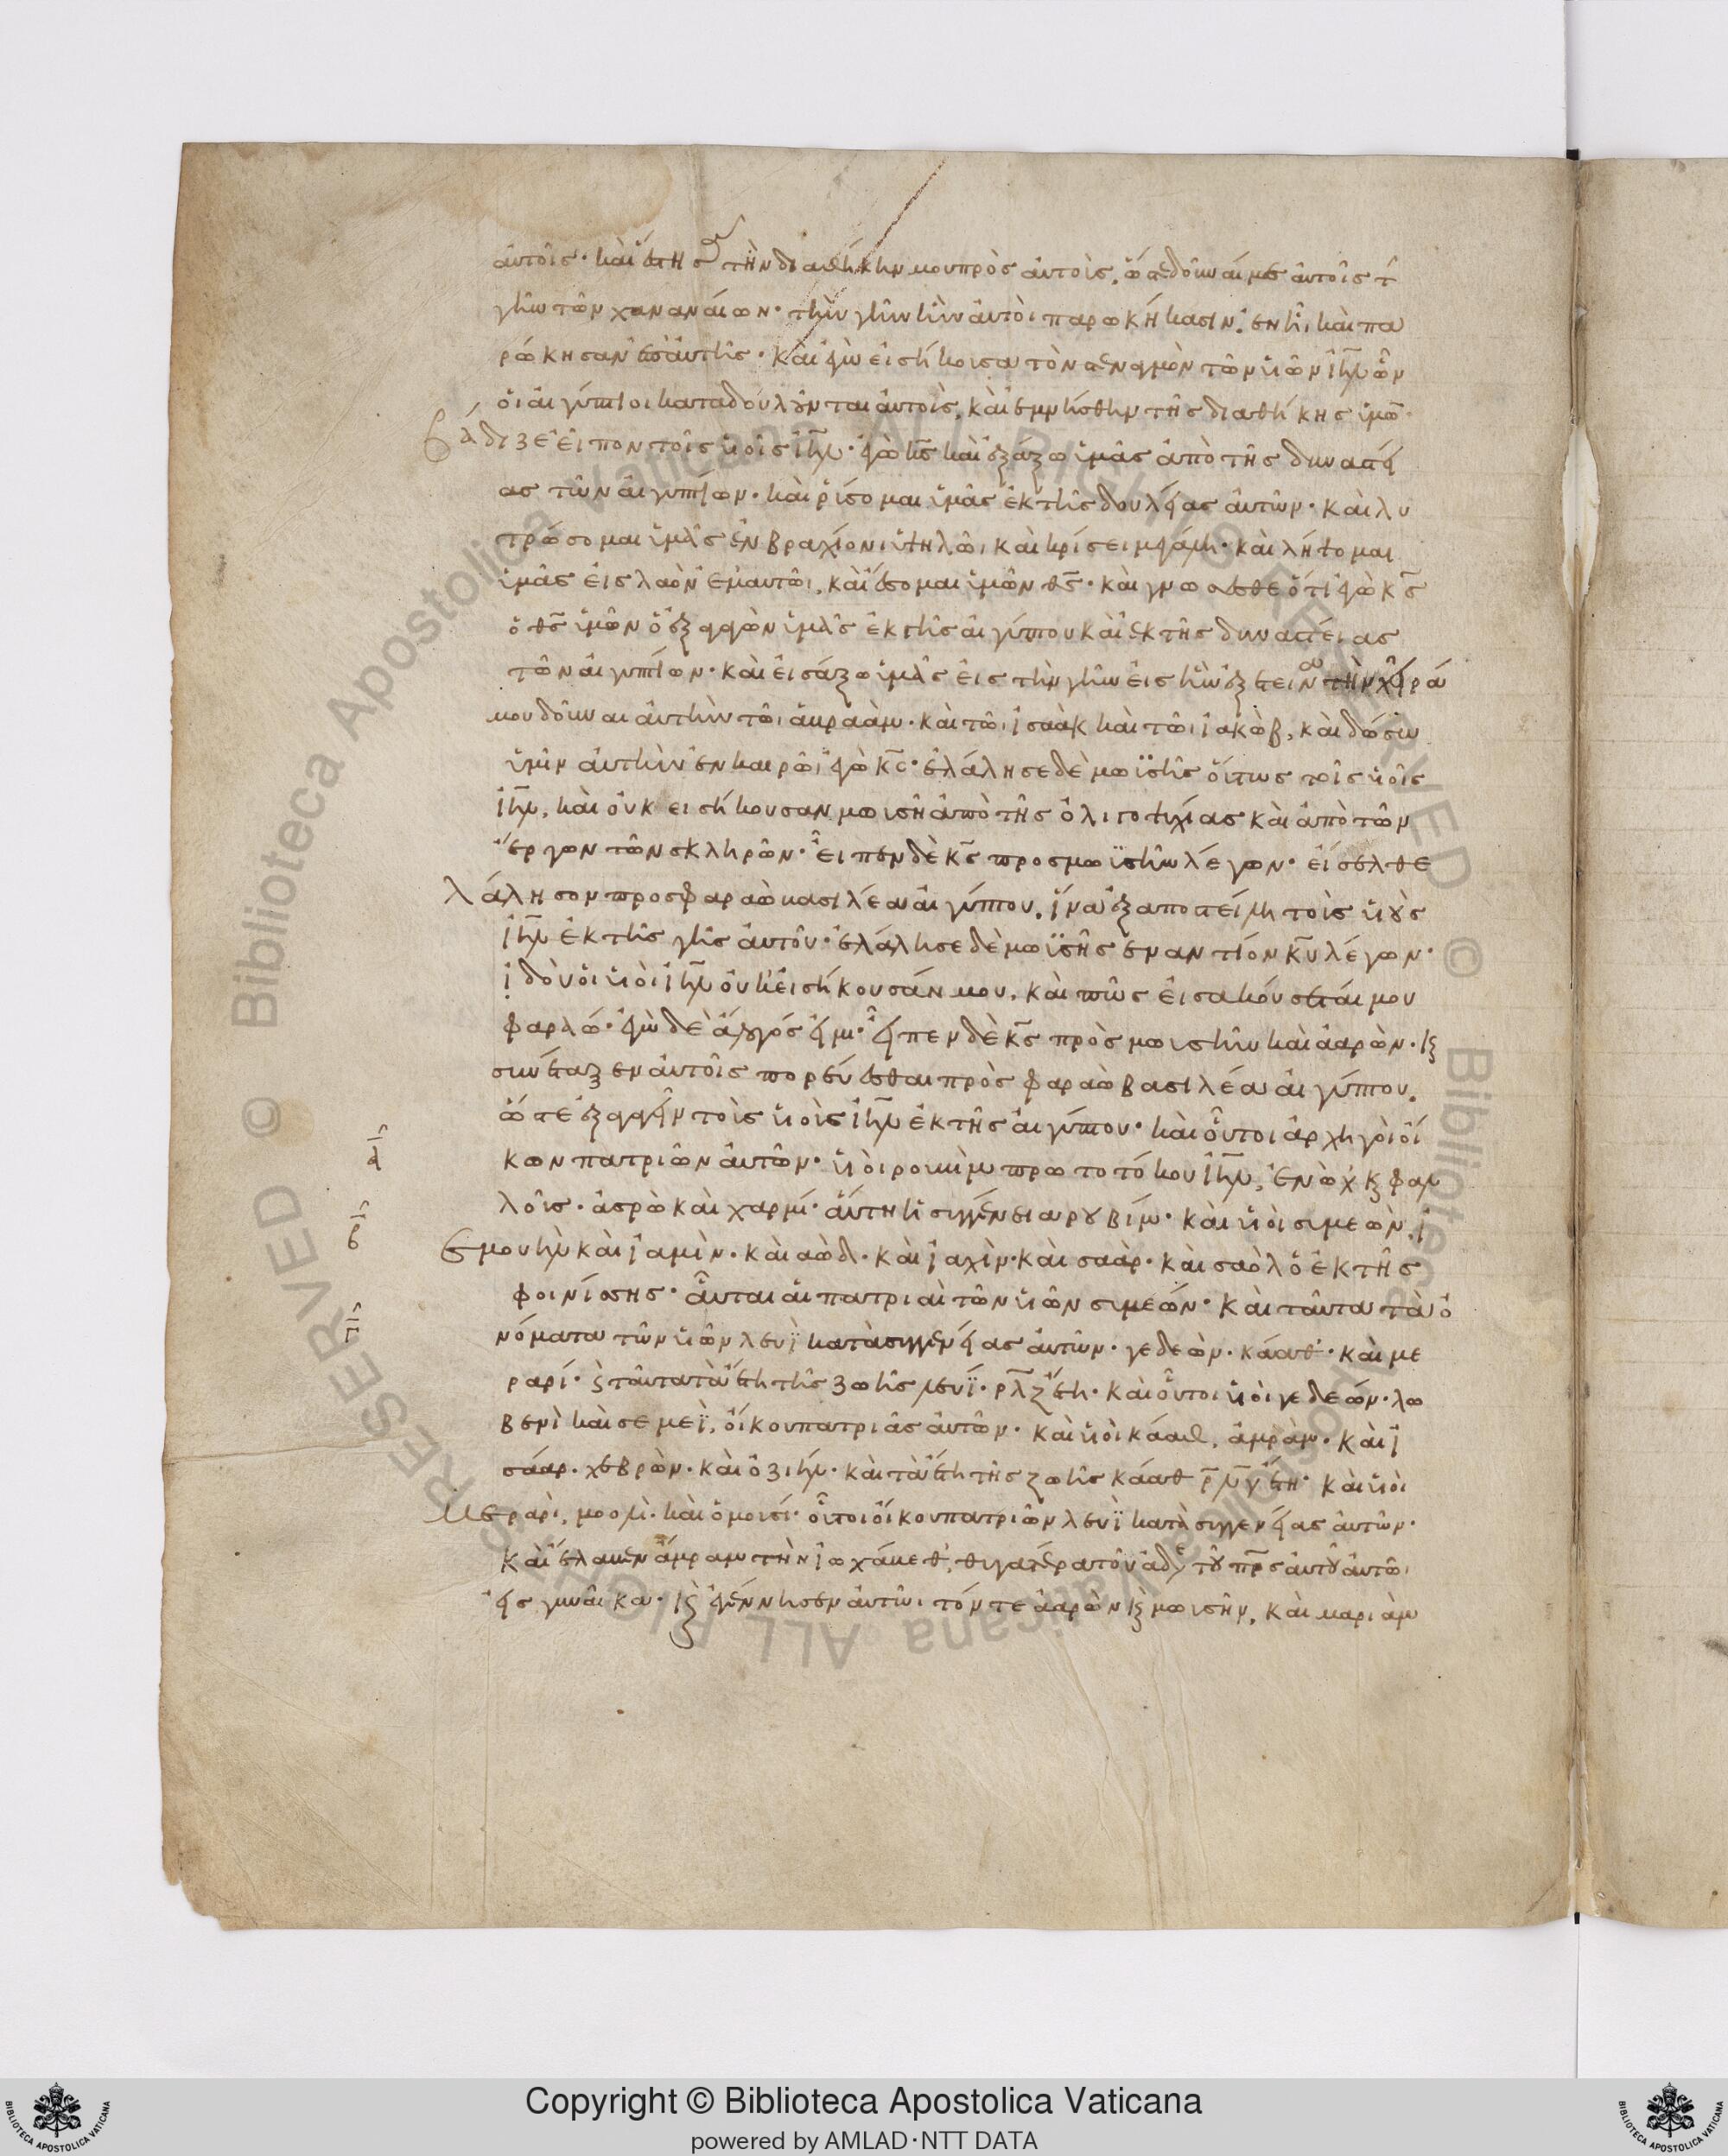 αὐτοῖς· καὶ ἔστησα τὴν διαθήκην μου πρὸς αὐτοὺς, ὥστε δοῦναί με αὐτοῖς τ
γῆν τῶν χαναναίων· τὴν γῆν ἣν αὐτοὶ παρωκήκασιν, ἐν ᾗ, καὶ πα
ρώκησαν ἐπ' αὐτῆς· καὶ ἐγὼ εἰσήκουσα τὸν στεναγμὸν τῶν υἱῶν ιηλ ὧν
οἱ αἰγύπτιοι καταδουλοῦνται αὐτοὺς, καὶ ἐμνήσθην τῆς διαθήκης ὑμῶ·
βάδιζε εἶπον τοῖς υἱοῖς ιηλ· ἐγὼ κς καὶ ἐξάξω ὑμᾶς ἀπὸ τῆς δυναστεί
ας τῶν αἰγυπτίων· καὶ ῥύσομαι ὑμᾶς ἐκ τῆς δουλείας αὐτῶν· καὶ λυ
τρώσομαι ὑμᾶς ἐν βραχίονι ὑψηλῶ, καὶ κρίσει μεγάλη· καὶ λήψομαι
ὑμᾶς εἰς λαὸν ἐμαυτῶι, καὶ ἔσομαι ὑμῶν θς· καὶ γνώσεσθε ὅτι ἐγὼ κς
ὁ θς ὑμῶν ὁ ἐξαγαγὼν ὑμᾶς ἐκ τῆς αἰγύπτου καὶ ἐκ τῆς δυναστείας
τῶν αἰγυπτίων· καὶ εἰσάξω ὑμᾶς εἰς τὴν γῆν εἰς ἣν ἐξέτεινα τὴν χεῖρά
μου δοῦναι αὐτὴν τῶι ἁβραὰμ· καὶ τῶι ἰσαὰκ καὶ τῶι ἰακὼβ, καὶ δώσω
ὑμῖν αὐτὴν ἐν καιρῶι, ἐγὼ κς· ἐλάλησε δὲ μωϋσῆς οὕτως τοῖς υἱοῖς
ιηλ, καὶ οὐκ εἰσήκουσαν μωυσῆ ἀπὸ τῆς ὀλιγοψυχίας καὶ ἀπὸ τῶν
ἔργων τῶν σκληρῶν· εἶπεν δὲ κς προς μωϋσῆν λέγων· εἴσελθε
λάλησον προς φαραὼ βασιλέα αἰγύπτου, ἵνα ἐξαποστείλη τοὺς υἱοὺς
ιηλ ἐκ τῆς γῆς αὐτοῦ· ἐλάλησε δὲ μωϋσῆς ἔναντίον κυ λέγων·
ἰδοὺ οἱ υἱοὶ ιηλ οὐκ εἰσήκουσάν μου. καὶ πῶς εἰσακούσεταί μου
φαραώ· ἐγὼ δὲ ἄλογός εἰμι· εἶπεν δὲ κς πρὸς μωυσῆν καὶ ἀαρὼν· κ
συνέταξεν αὐτοῖς πορεύεσθαι πρὸς φαραὼ βασιλέα αἰγύπτου.
ὥστε ἐξαγαγεῖν τοὺς υἱοὺς ιηλ ἐκ τῆς αἰγύπτου· καὶ οὗτοι ἀρχηγοὶ οἴ
κων πατριῶν αὐτῶν· υἱοὶ ρουβὶμ πρωτοτόκου ιηλ, ἐνὼχ κ φαλ
λοῦς· ἀσρὼ καὶ χαρμί· αὕτη ἡ συγγένεια ρουβίμ· καὶ υἱοὶ συμεὼν, ἰ
εμουὴλ καὶ ἰαμὶν· καὶ αὼδ· καὶ ἰαχὶν· καὶ σαὰρ· καὶ σαοὺλ ὁ ἐκ τῆς
φοινίσσης· αὗται αἱ πατριαὶ τῶν υἱῶν συμεών· καὶ ταῦτα τὰ ὀ
νόματα τῶν υἱῶν λευῒ κατὰ συγγενείας αὐτῶν· γεδεὼν· κάαθ· καὶ με
ραρί· κ ταῦτα τὰ ἔτη τῆς ζωῆς λευΐ· ρλζ ἔτη· καὶ οὗτοι υἱοὶ γεδεών· λο
βενὶ καὶ σεμεῒ, οἴκου πατριᾶς αὐτῶν· καὶ υἱοὶ κάαθ, ἀμρὰμ· καὶ ἰ
σάαρ· χεβρὼν· καὶ ὀζιήλ· καὶ τὰ ἔτη τῆς ζωῆς κάαθ ρλγ ἔτη· καὶ υἱοὶ
μεραρὶ, μοολὶ· καὶ ὁμουσί· οὗτοι οἴκου πατριῶν λευῒ κατὰ συγγενείας αὐτῶν·
καὶ ἔλαβεν ἄμραμ τὴν ἰωχάβεθ, θυγατέρα τοῦ ἀδελ τοῦ πρς αὐτοῦ αὐτῶ
εἰς γυναῖκα· κ ἐγέννησεν αὐτῶι τόν τε ἀαρὼν κ μωυσῆν, καὶ μαριὰμ